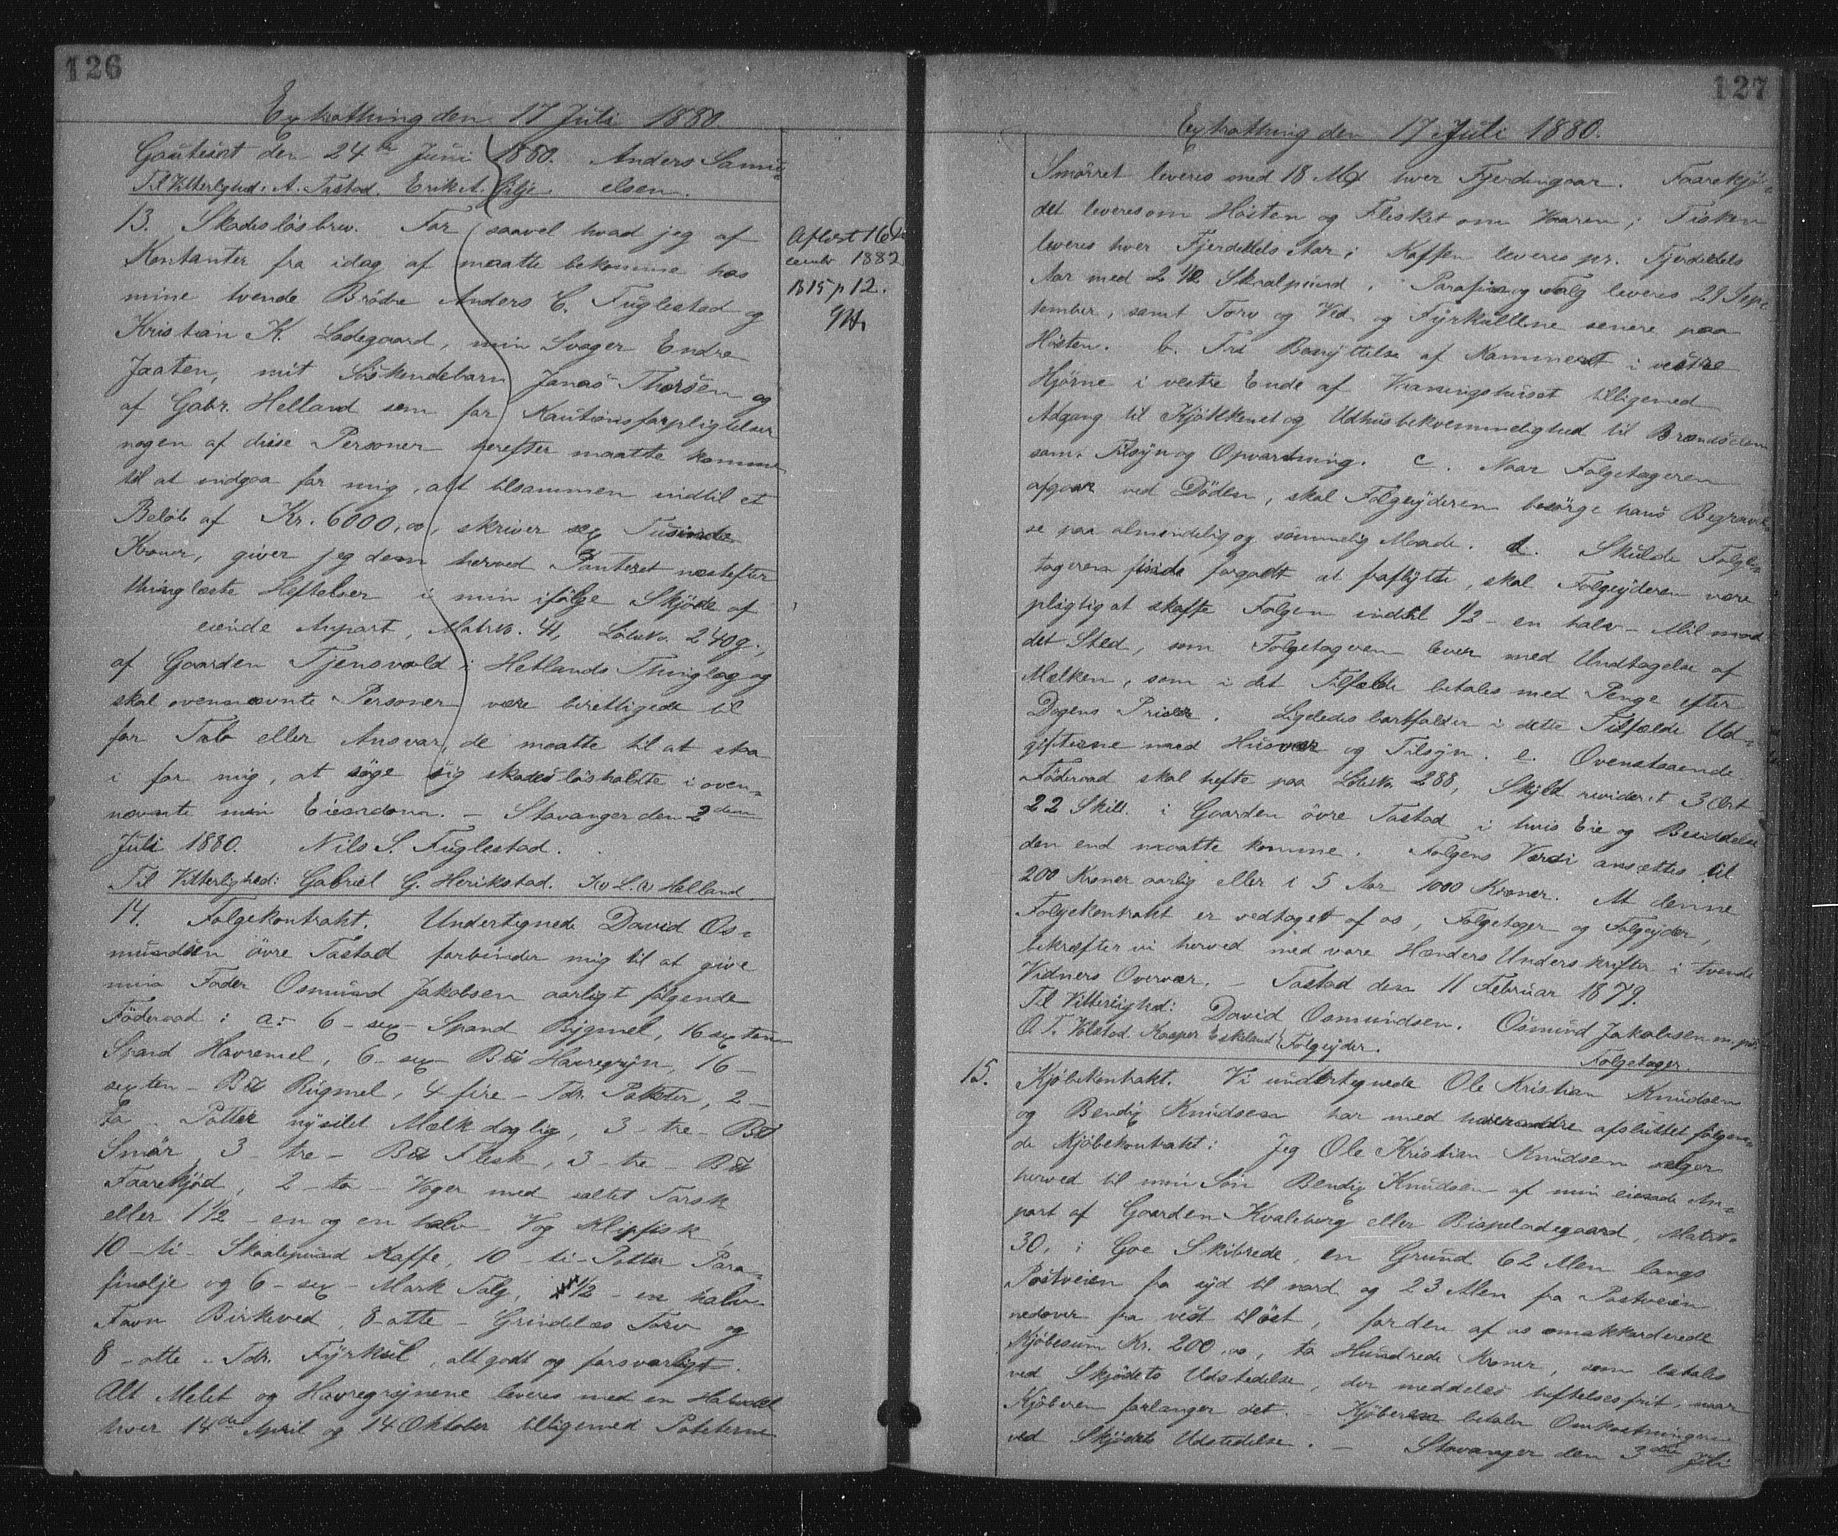 126
Extrathing den 17 Juli 1880.
Gauteset den 24de Juni 1880. Anders Samu-
Til Vitterlighed: A. Tastad. Erik A. Lilje elsen.
13. Skadesløsbrev. For saavel hvad jeg af
Kontanter fra idag af maatte bekomme hos
mine tvende Brødre Anders C. Fuglestad og
Kristian K. Ladegaard, min Svoger Endre
Jaaten, mit Søskendebarn Jonas Thorsen og
af Gabr. Helland som for Kautionsforpligtelser
nogen af disse Personer herefter maatte komme
til at indgaa for mig, alt tilsammen indtil et
Beløb af Kr. 6000,00, skriver sex Tusinde
Kroner, giver jeg dem herved Panteret næstefter
thinglæste Heftelser i min ifølge Skjøde af
eiende Anpart, Matrno. 41, Løbeno 240g.,
af Gaarden Tjensvold i Hetlands Thinglag og
skal ovennævnte Personer være berettigede til
for Tab eller Ansvar, de maatte til at staa
i for mig, at søge sig skadesløsholdte i oven-
nævnte min Eiendom. – Stavanger den 2den
Juli 1880. Nils S. Fuglestad.
Til Vitterlighed: Gabriel G. Herikstad. L. Helland
Aflæst 16 De
cember 1882
B 15 p 12.
14. Følgekontrakt. Undertegnede David Os-
mundsen øvre Tastad forbinder mig til at give
min Fader Osmund Jakobsen aarligt følgende
Føderaad: a: 6 – sex – Spand Bygmel, 16 sexten
Spand Havremel, 6 – sex – Bd Havregryn, 16 –
sexten – Bd Rugmel, 4 fire – Tdr. Poteter, 2 –
to – Potter nysilet Melk daglig, 3 – tre – Bd
Smør, 3 – tre – Bd Flesk, 3 – tre – Bd
Faarekjød, 2 – to – Voger med saltet Torsk
eller 1 1/2 – en og en halv – Vog Klipfisk,
10 – ti – Skaalpund Kaffe, 10 – ti – Potter Para-
finolje og 6 – sex – Mark Talg, 1/2 – en halv –
Favn Birkeved, 8 otte – Grindelas Torv og
8 – otte – Tdr. Fyrkul, alt godt og forsvarligt.
Alt Melet og Havregrynene leveres med en Halvdel
hver 14de April og 14 Oktober tilligemed Poteterne
127
Extrathing den 17 Juli 1880.
Smørret leveres med 18 Mk hver Fjerdingaar. Faarekjø-
det leveres om Høsten og Flesket om Vaaren; Fisken
leveres hver Fjerdedels Aar; Kaffen leveres pr. Fjerdedels
Aar med 2 1/2 Skaalpund. Parafin og Talg leveres 29 Sep-
tember, samt Torv og Ved og Fyrkullene senere paa
Høsten. b. Fri Benyttelse af Kammeret i vestre
Hjørne i vestre Ende af Vaaningshuset tilligemed
Adgang til Kjøkkenet og Udhusbekvemmelighed til Brændselen
samt Tilsyn og Opvartning. c. Naar Følgetageren
afgaar ved Døden, skal Følgeyderen besørge hans Begravel-
se paa almindelig og sømmelig Maade. d. Skulde Følge-
tageren finde forgodt at fraflytte, skal Følgeyderen være
pligtig at skaffe Følgen indtil 1/2 – en halv – Mil mod
det Sted, som Følgetageren lever med Undtagelse af
Melken, som i det Tilfælde betales med Penge efter
Dagens Priser. Ligeledes bortfalder i dette Tilfælde Ud-
gifterne med Husvær og Tilsyn. e. Ovenstaaende
Føderaad skal hefte paa Løbeno 288, Skyld revideret 3 Ort
22 Skill. i Gaarden øvre Tastad i hvis Eie og Besiddelse
den end maatte komme. Følgens Værdi ansættes til
200 Kroner aarlig eller i 5 Aar 1000 Kroner. At denne
Følgekontrakt er vedtaget af os, Følgetager og Følgeyder,
bekræfter vi herved med vore Hænders Underskrifter i tvende
Vidners Overvær. – Tastad den 11 Februar 1879.
Til Vitterlighed: David Osmundsen. Osmund Jakobsen m. p.
O. T. Kolstad. Kasper Eskeland Følgeyder. Følgetager.
15. Kjøbekontrakt. Vi undertegnede Ole Kristian Knudsen
og Bendig Knudsen har med hverandre afsluttet følgen-
de Kjøbekontrakt: Jeg Ole Kristian Knudsen sælger
herved til min Søn Bendig Knudsen af min eiende An-
part af Gaarden Kvaleberg eller Bispeladegaard, Matrno.
30, i Goe Skibrede, en Grund 62 Alen langs
Postveien fra syd til nord og 23 Alen fra Postveien
nedover fra vest til øst, for den af os omakkorderede
Kjøbesum Kr. 200,00, to Hundrede Kroner, som betales
ved Skjødets Udstedelse, der meddeles heftelsesfrit, naar
Kjøberen forlanger det. – Kjøberen betaler Omkostningerne
ved Skjødets Udstedelse. – Stavanger den 3die Juli